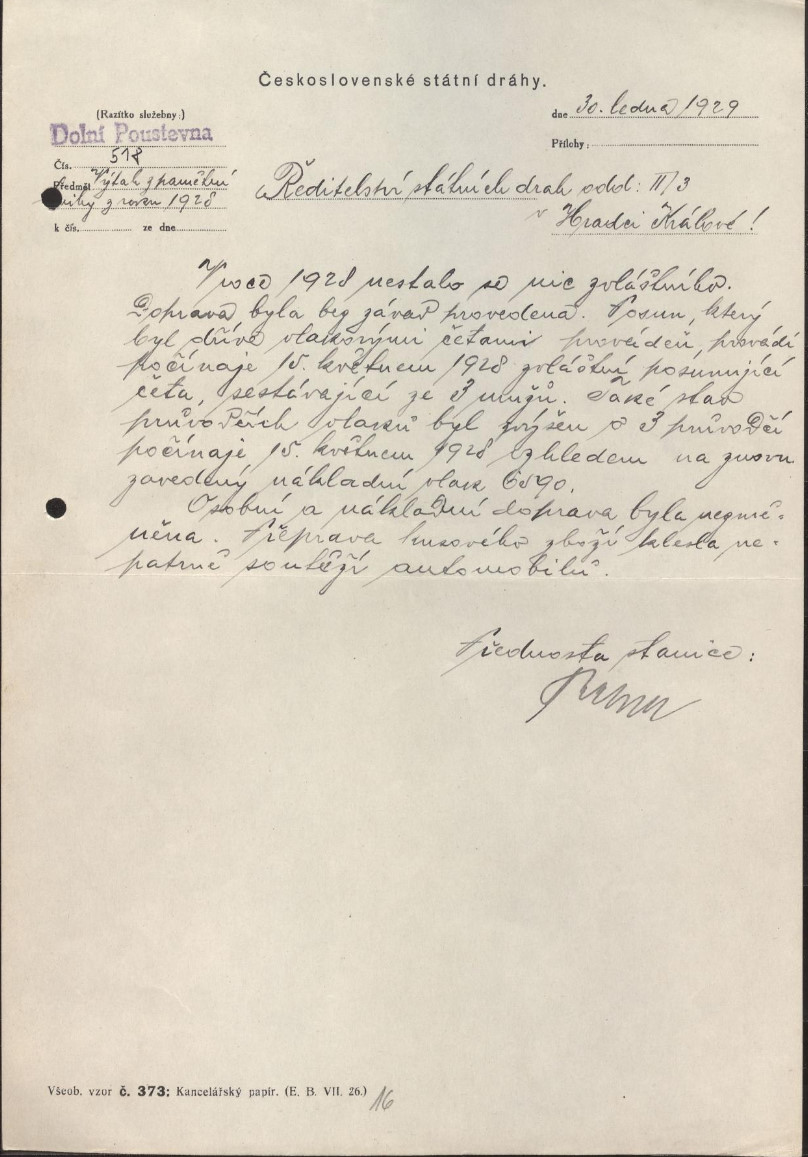 Československé státní dráhy.
(Razítko služebny:)
Dolní Poustevna
dne 30. ledna 1929
Přílohy:
Čís. 518
Předmět Výtah z pamětní
knihy z roku 1928
k čís. ze dne
Ředitelství státních drah odd: III/3
v Hradci Králové!
V roce 1928 nestalo se nic zvláštního.
Doprava byla bez závad provedena. Posun, který
byl dříve vlakovými četami prováděn, provádí
počínaje 15. květnem 1928 zvláštní posunující
četa, sestávající ze 3 mužů. Také stav
průvodčích vlaků byl zvýšen o 3 průvodčí
počínaje 15. květnem 1928 vzhledem na znovu
zavedený nákladní vlak 6590.
Osobní a nákladní doprava byla nezmě-
něna. Přeprava kusového zboží klesla ne-
patrně soutěží automobilů.
Přednosta stanice:
Všeob. vzor č. 373; Kancelářský papír. (E. B. VII. 26.)
16